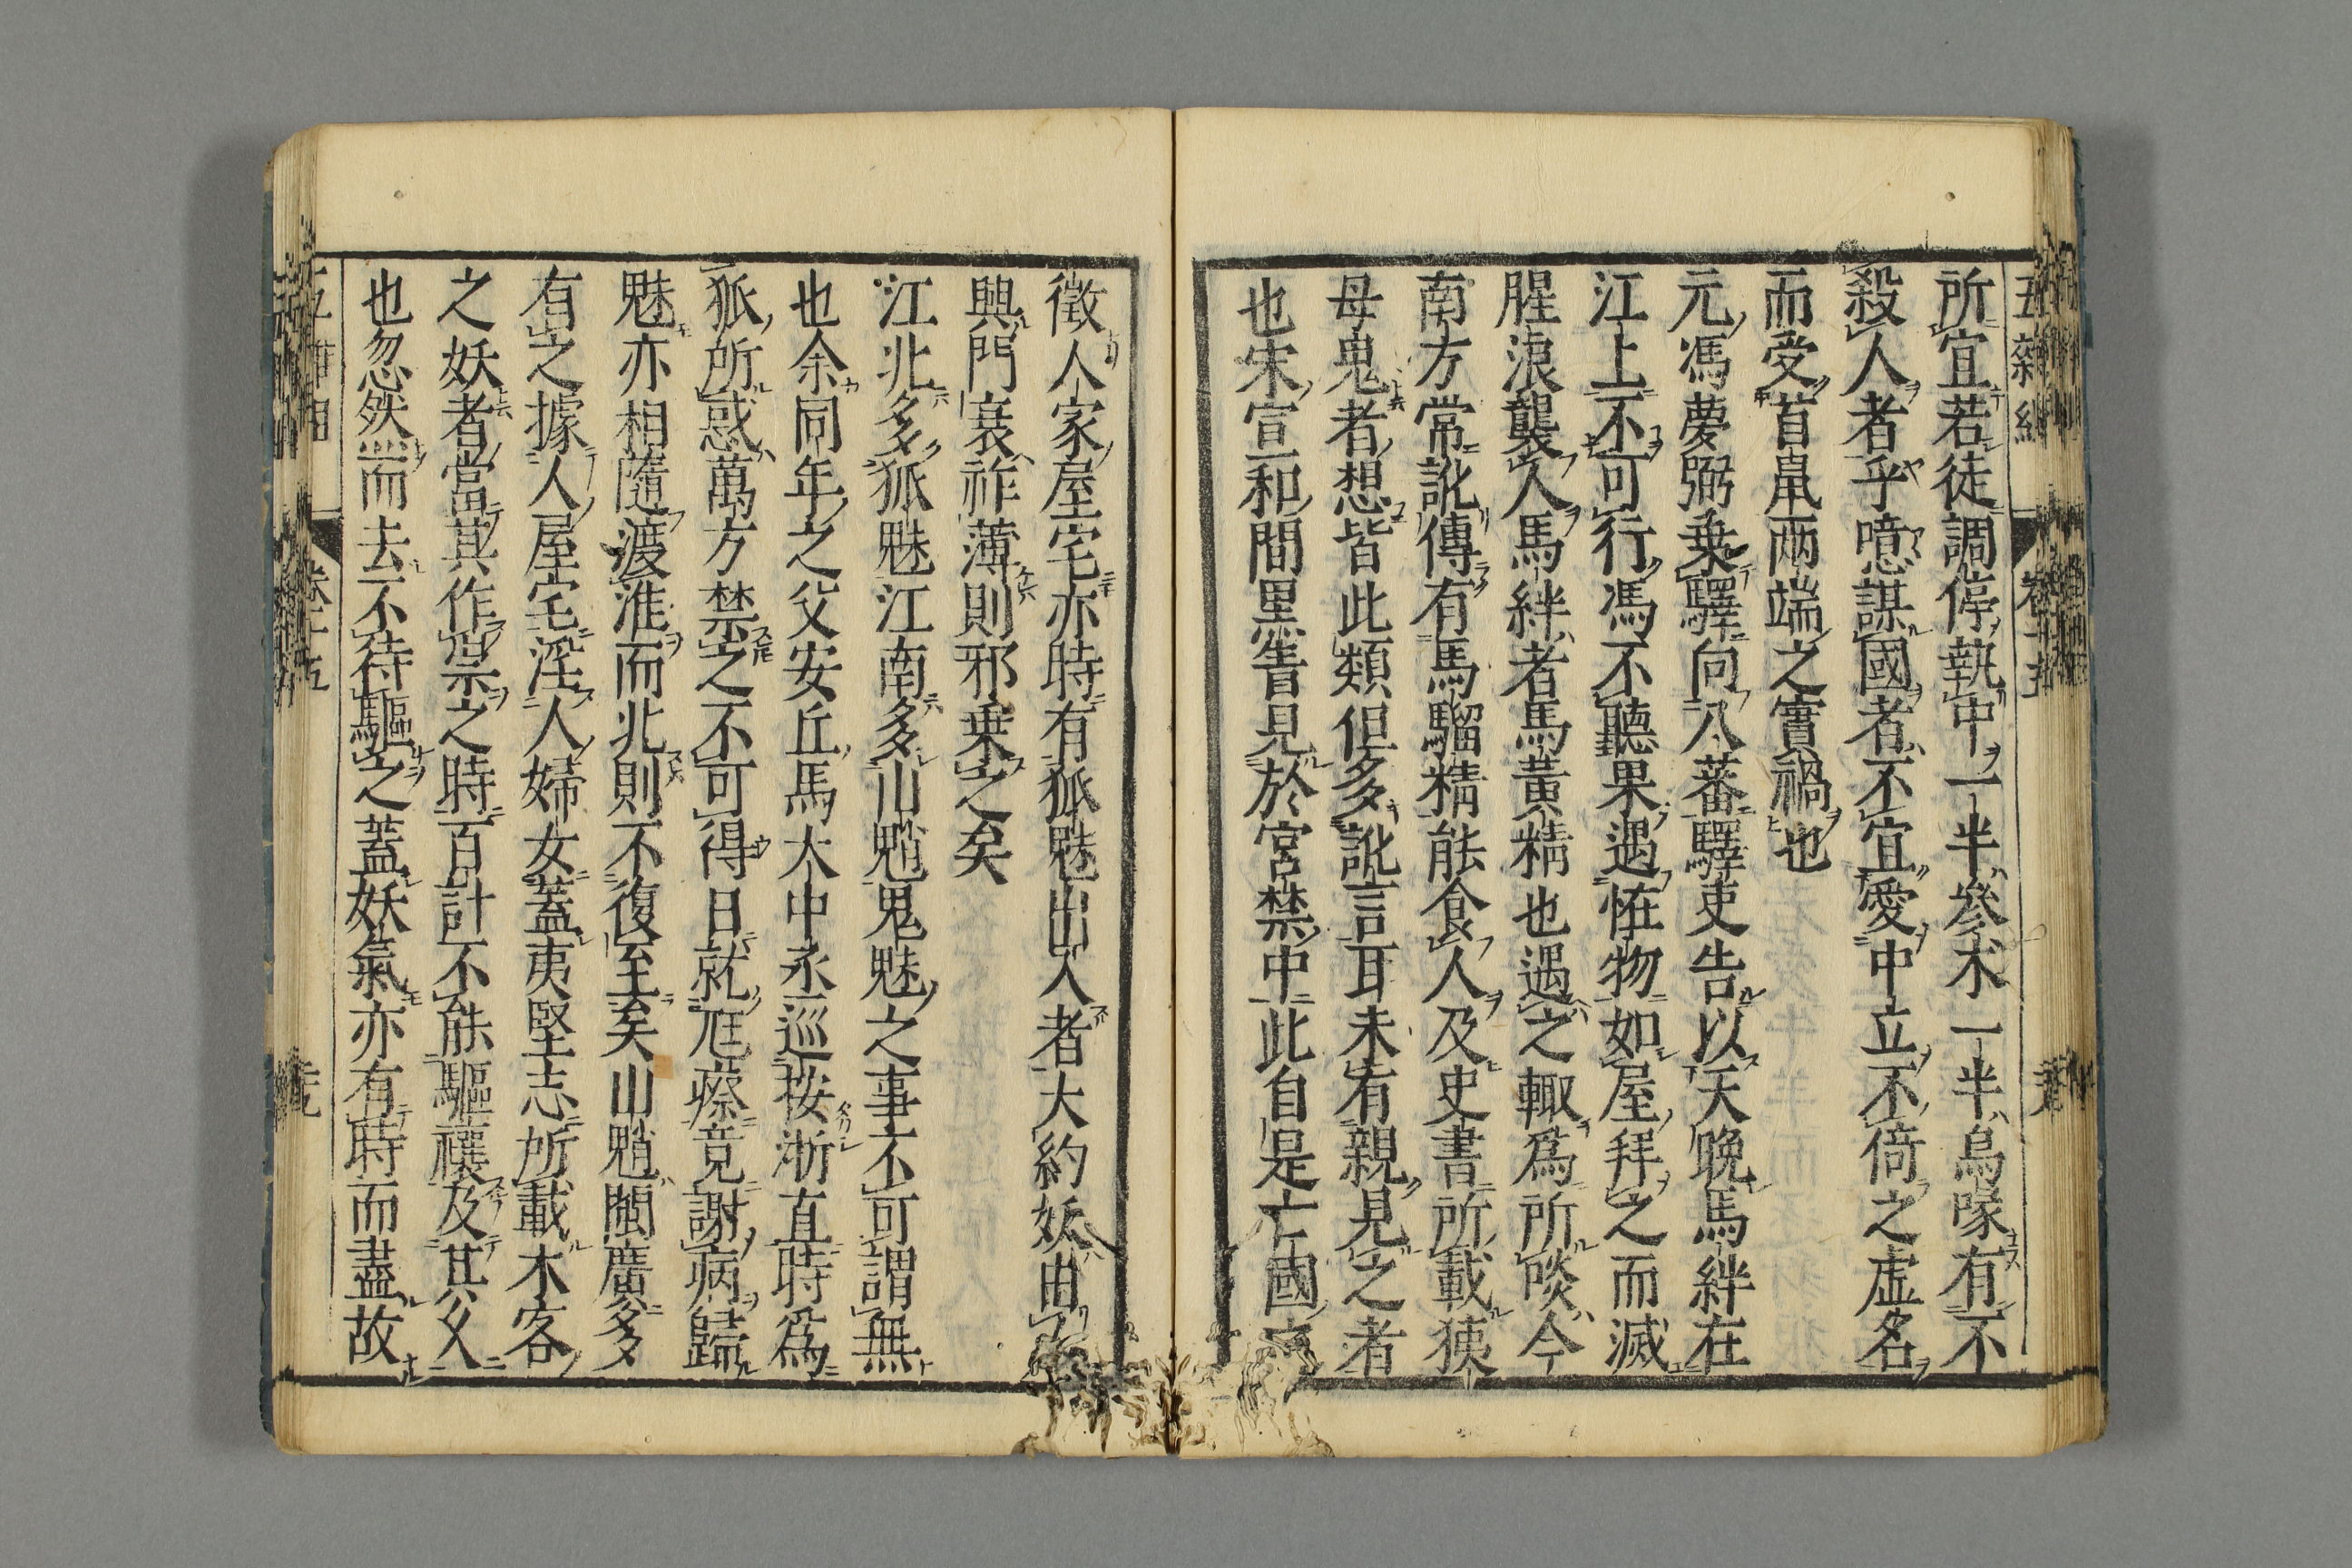 五雜組 卷十五
所宜若徒調停執中一半參朮一半烏喙有不
殺人者乎噫謀國者不宜愛中立不倚之虛名
而受首鼠兩端之實禍也
元馮夢弼乗驛向八蕃驛吏告以天晚馬絆在
江上不可行馮不聽果遇恠物如屋拜之而滅
腥浪襲人馬絆者馬黃精也遇之輙爲所啖今
南方常訛傳有馬騮精能食人及史書所載㺊
母鬼者想皆此類但多訛言耳未有親見之者
也宋宣和間黑眚見於宮禁中此自是亡國
徵人家屋宅亦時有狐魅出入者大約妖由
興門衰祚薄則邪乗之矣
江北多狐魅江南多山魈鬼魅之事不可謂無
也余同年之父安丘馬大中丞巡按浙直時爲
狐所惑萬方禁之不可得日就尫瘵竟謝病歸
魅亦相隨渡淮而北則不復至矣山魈閩廣多
有之據人屋宅淫人婦女蓋夷堅志所載木客
之妖者當其作祟之時百計不能驅禳及其父
也忽然而去不待驅之蓋妖氣亦有時而盡故